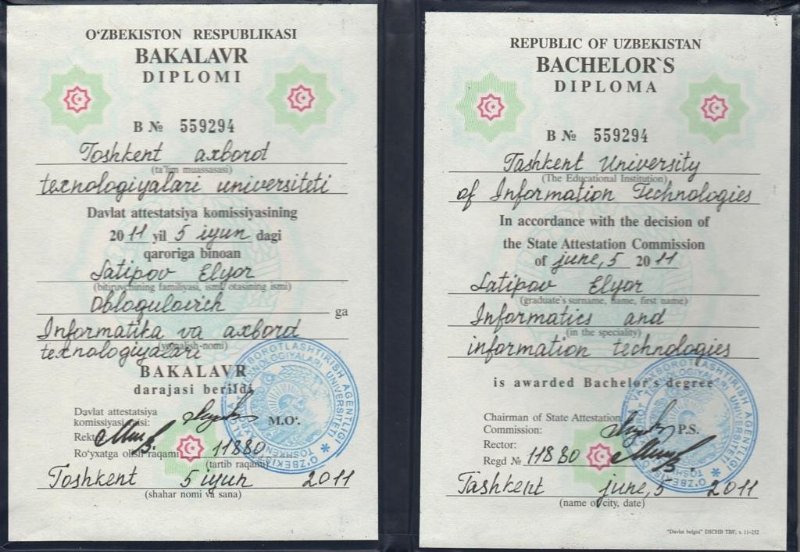 O'ZBEKISTON RESPUBLIKASI
BAKALAVR
DIPLOMI
B № 559294
Toshkent axborot
(ta'lim muassasasi)
texnologiyalari universiteti
Davlat attestatsiya komissiyasining
2011 yil 5 iyun dagi
qaroriga binoan
Satipov Elyor
(bitiruvchining familiyasi, ismi, otasining ismi)
Obloqulovich ga
Informatika va axborot
(yo'nalish-nomi)
texnologiyalari
BAKALAVR
darajasi berildi
Davlat attestatsiya
komissiyasi raisi:
M.O'.
Rektor
Ro'yxatga olish raqami 11880
(tartib raqami)
Toshkent 5 iyun 2011
(shahar nomi va sana)
REPUBLIC OF UZBEKISTAN
BACHELOR`S
DIPLOMA
B № 559294
Tashkent University
(The Educational Institution)
of Information Technologies
In accordance with the decision of
the State Attestation Commission
of june, 5 2011
Satipov Elyor
(graduate's surname, name, first name)
Informatics and
(in the speciality)
information technologies
is awarded Bachelor's degree
Chairman of State Attestation
Commission:
P.S.
Rector:
Regd № 11880
Tashkent june, 5 2011
(name of city, date)
"Davlat belgisi" DSCHB TBF, x. 11-252